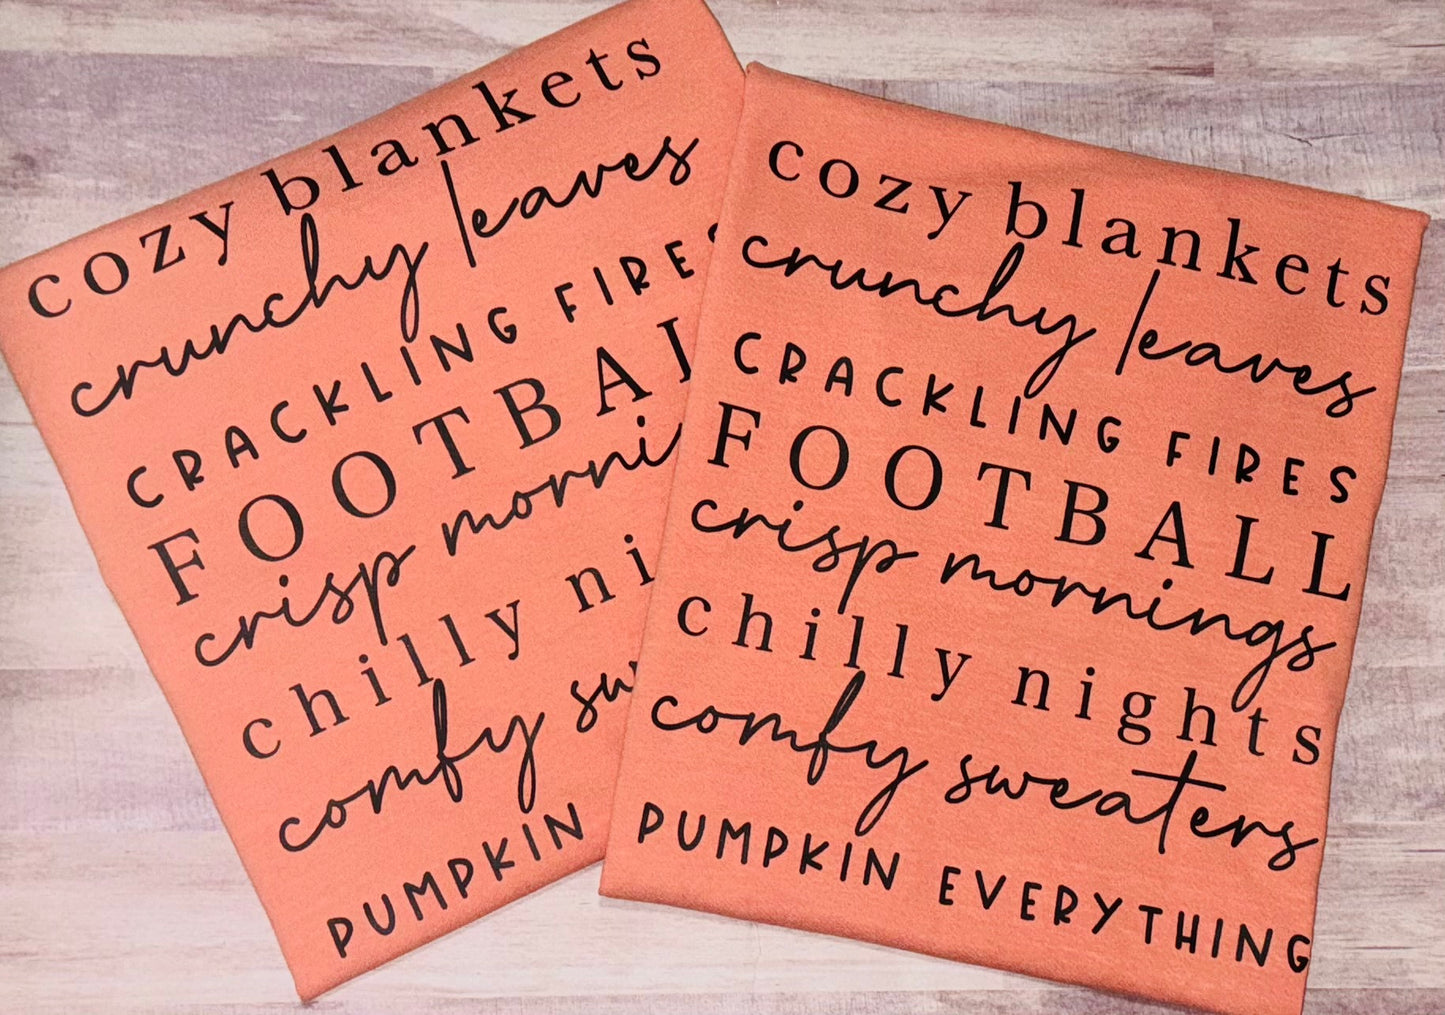 cozy blankets
crunchy leaves
CRACKLING FIRES
FOOTBAL
crisp morni
chilly ni
comfy sw
PUMPKIN
cozy blankets
crunchy leaves
CRACKLING FIRES
FOOTBALL
crisp mornings
chilly nights
comfy sweaters
PUMPKIN EVERYTHING